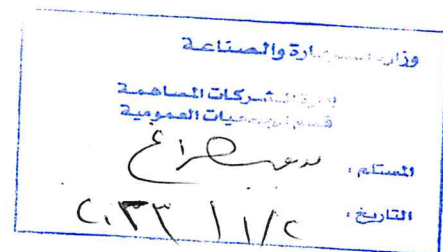 وزارة التجارة والصناعة
إدارة الشركات المساهمة
قسم الجمعيات العمومية
المستلم :
التاريخ : ٢٠٢٣/١/٢